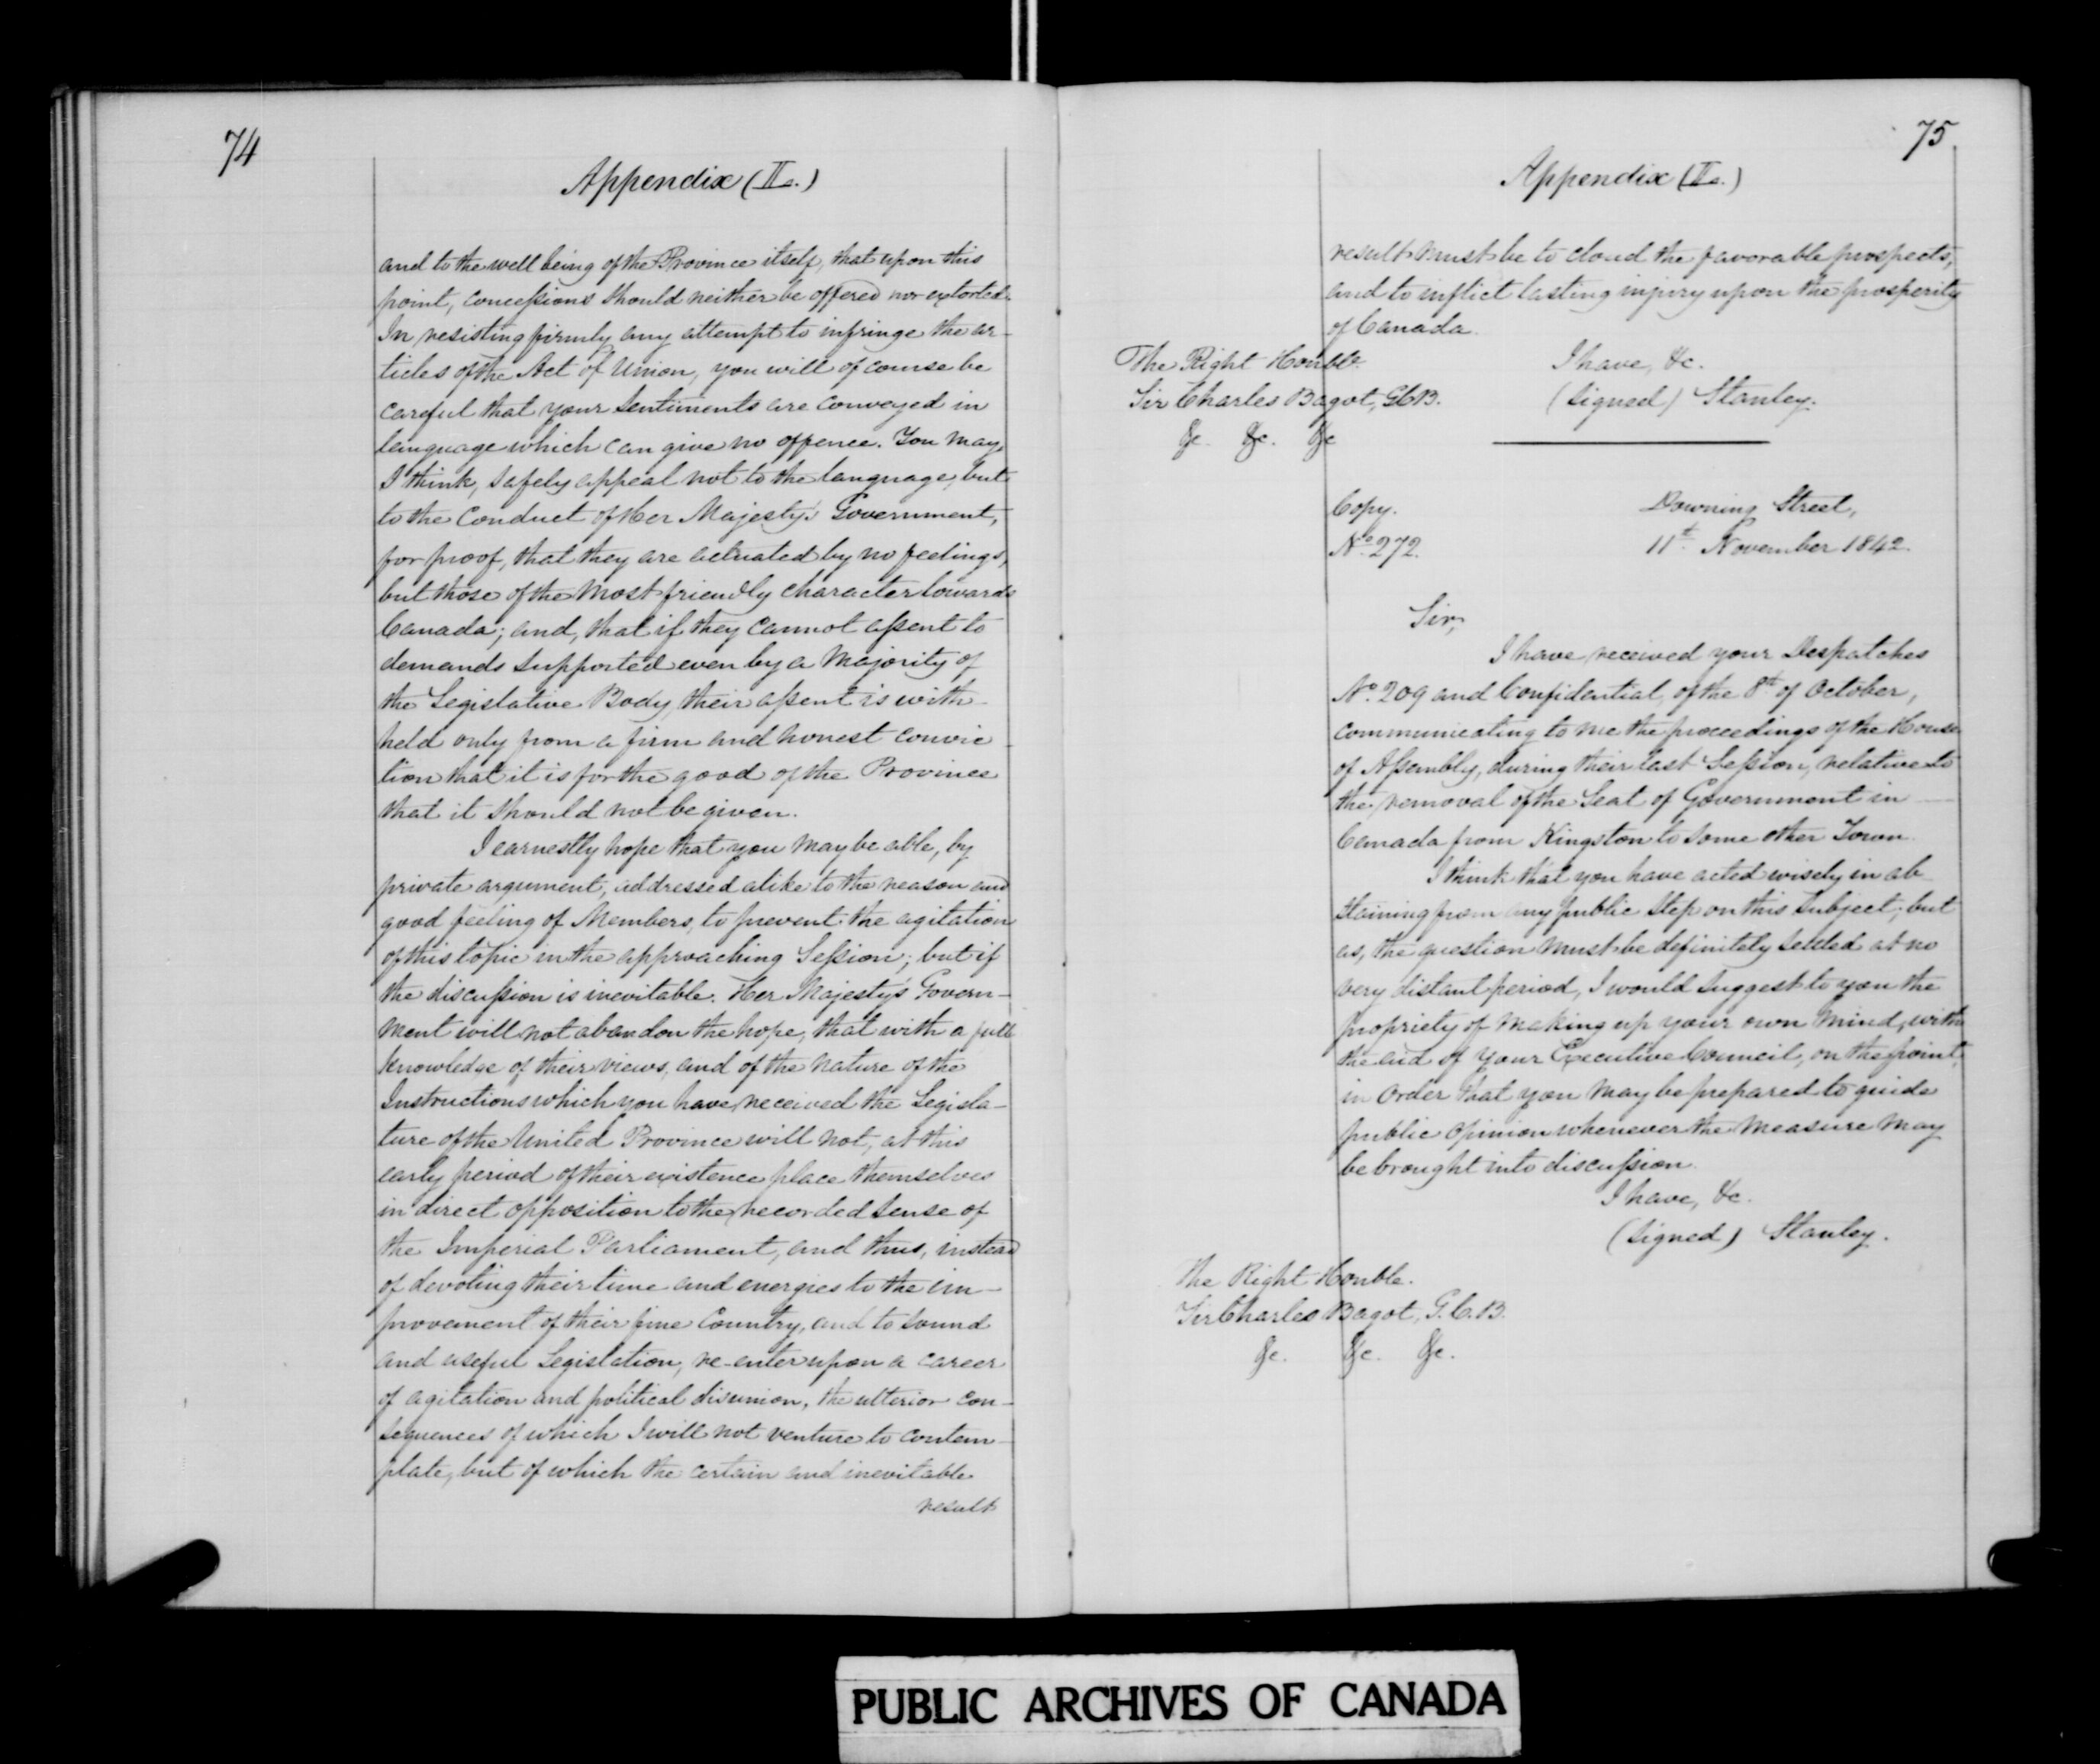 74
Appendix (II a.)
and to the well being of the Province itself, that upon this
point, concessions should neither be offered nor extorted.
In resisting firmly any attempt to infringe the ar-
ticles of the Act of Union, you will of course be
careful that your sentiments are conveyed in
language which can give no offence. You may,
I think, safely appeal not to the language, but
to the conduct of Her Majesty's Government,
for proof, that they are actuated by no feelings,
but those of the most friendly character towards
Canada; and, that if they cannot assent to
demands supported even by a Majority of
the Legislative Body, their assent is with-
held only from a firm and honest convic-
tion that it is for the good of the Province
that it should not be given.
I earnestly hope that you may be able, by
private argument, addressed alike to the reason and
good feeling of Members, to prevent the agitation
of this topic in the approaching Session; but if
the discussion is inevitable. Her Majesty's Govern-
ment will not abandon the hope, that with a full
knowledge of their views, and of the nature of the
Instructions which you have received the Legisla-
ture of the United Province will not, at this
early period of their existence place themselves
in direct opposition to the recorded sense of
the Imperial Parliament, and thus, instead
of devoting their time and energies to the im-
provement of their fine Country, and to sound
and useful Legislation, re-enter upon a career
of agitation and political disunion, the ulterior con-
sequences of which I will not venture to contem-
plate, but of which the certain and inevitable
result
75
Appendix (II a.)
result must be to cloud the favorable prospects,
and to inflict lasting injury upon the prosperity
of Canada.
I have, &c.
(Signed) Stanley.
The Right Honble.
Sir Charles Bagot, GCB.
&c. &c. &c
Copy.
No. 272.
Downing Street,
11th November 1842.
Sir,
I have received your Despatches
No. 209 and Confidential, of the 8th of October,
communicating to me the proceedings of the House
of Assembly, during their last Session, relative to
the removal of the Seat of Government in
Canada from Kingston to some other Town.
I think that you have acted wisely in ab-
staining from any public step on this subject; but
as, the question must be definitely settled at no
very distant period, I would suggest to you the
propriety of making up your own mind, with
the aid of your Executive Council, on the point,
in order that you may be prepared to guide
public opinion whenever the measure may
be brought into discussion.
I have, &c.
(Signed) Stanley.
The Right Honble.
Sir Charles Bagot, G.C.B.
&c. &c. &c.
PUBLIC ARCHIVES OF CANADA